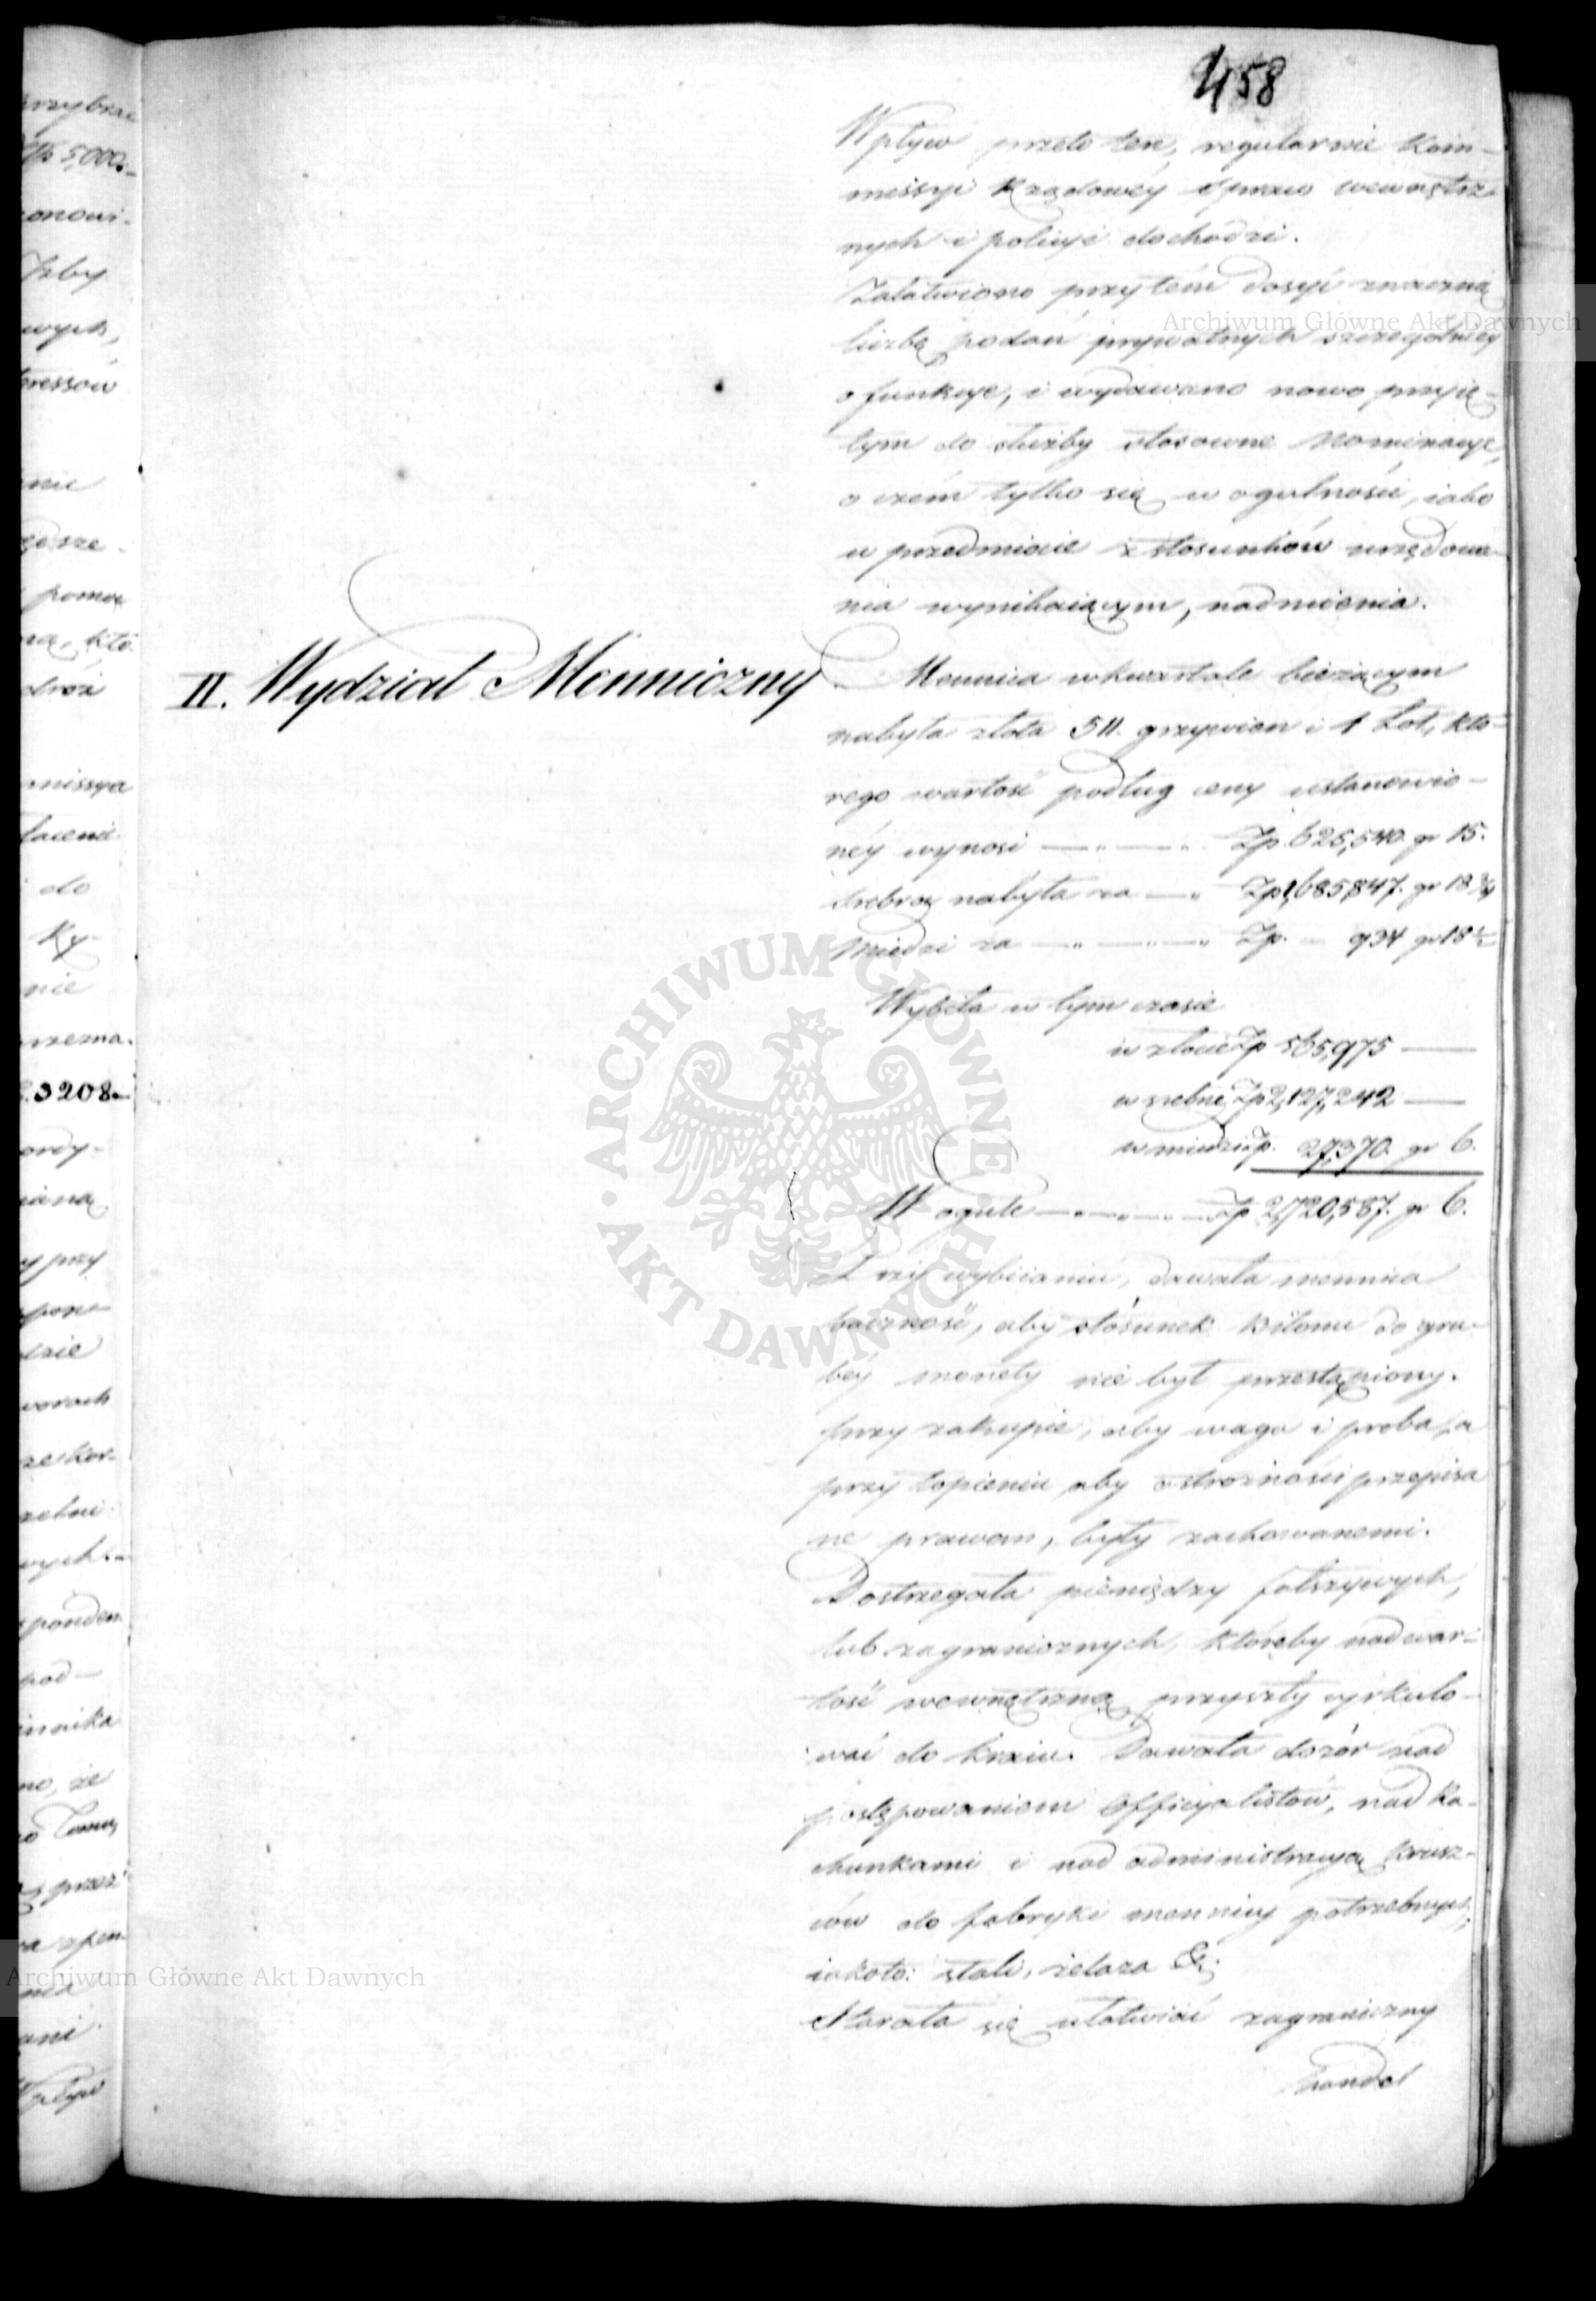 458
Wpływ przeto ten, regularnie Kom-
missyi Rządowéy Spraw wewnętrz-
nych i policyi dochodzi.
Załatwiono przytém dosyć znaczną
liczbę podań prywatnych szczególniey
o funkcye, i wydawano nowo przyię-
tym do służby stosowne Nominacye,
o czém tylko się w ogulności, iako
w przedmiocie z stosunków urzędowa-
nia wynikaiącym, nadmienia.
II. Wydział Menniczny
Mennica w kwartale bieżącym
nabyła złota 511. grzywien i 1 Łot, któ-
rego wartość podług ceny ustanowio-
néy wynosi Zp. 626,540. gr 15.
Srebra nabyła za Zp 1,685,847. gr 18 3/4
Miedzi za Zp. 934 gr 18 1/2
Wybiła w tym czasie
w złocie Zp 565,975 —
w srebrze Zp 2,127,242 —
w miedzi Zp. 27,370. gr 6.
W ogule Zp 2,720,587. gr 6.
Przy wybiianiu, dawała mennica
baczność, aby stosunek bilonu do gru-
béy monety nie był przestąpiony.
przy zakupie, aby waga i proba, a
przy topieniu aby ostrożności przepisa
ne prawem, były zachowanemi.
Dostrzegała pieniędzy fałszywych,
lub zagranicznych, któreby nad war-
tość wewnętrzną przyszły cyrkulo-
wać do kraiu. Dawała dozór nad
postępowaniem Officyalistów, nad Ra-
chunkami i nad administracyą krusz-
ców do fabryki mennicy potrzebnych,
iakoto: stali, żelaza &.
Starała się ułatwiać zagraniczny
handel
3208.
Archiwum Główne Akt Dawnych
Archiwum Główne Akt Dawnych
ARCHIWUM GŁÓWNE · AKT DAWNYCH ·